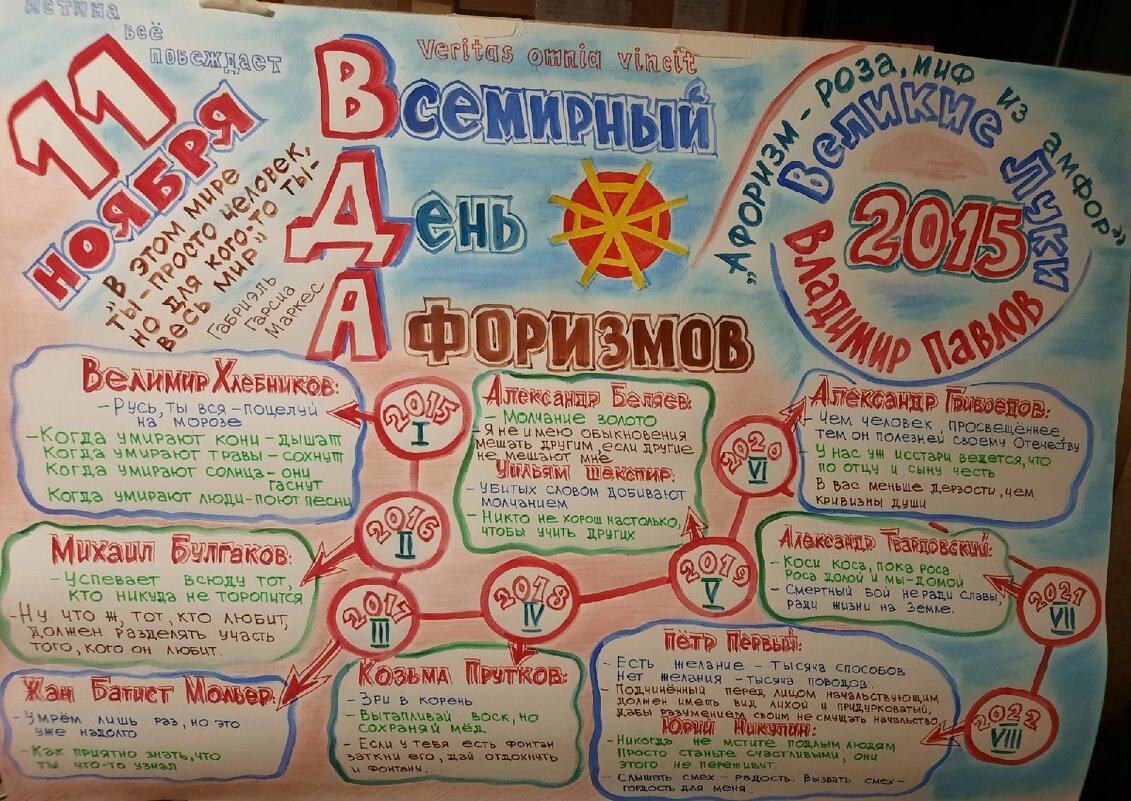 Истина
всё
побеждает
11
НОЯБРЯ
„В ЭТОМ МИРЕ
ТЫ - ПРОСТО ЧЕЛОВЕК,
НО ДЛЯ КОГО-ТО ТЫ -
ВЕСЬ МИР"
Габриэль
Гарсиа
Маркес
Veritas omnia vincit
Всемирный
День
Афоризмов
„Афоризм - роза, миф из амфор"
Великие Луки
2015
Владимир Павлов
Велимир Хлебников:
- Русь, ты вся - поцелуй
на морозе
- Когда умирают кони - дышат
Когда умирают травы - сохнут
Когда умирают солнца - они
гаснут
Когда умирают люди - поют песни
2015
I
Михаил Булгаков:
- Успевает всюду тот,
кто никуда не торопится
- Ну что ж, тот, кто любит,
должен разделять участь
того, кого он любит.
2016
II
Жан Батист Мольер:
- Умрём лишь раз, но это
уже надолго
- Как приятно знать, что
ты что-то узнал
2017
III
Козьма Прутков:
- Зри в корень
- Вытапливай воск, но
сохраняй мёд.
- Если у тебя есть фонтан
заткни его, дай отдохнуть
и фонтану.
2018
IV
Александр Беляев:
- Молчание золото
- Я не имею обыкновения
мешать другим, если другие
не мешают мне
Уильям Шекспир:
- Убитых словом добивают
молчанием
- Никто не хорош настолько,
чтобы учить других
2019
V
Александр Грибоедов:
- Чем человек просвещённее,
тем он полезней своему Отечеству
- У нас уж исстари ведется, что
по отцу и сыну честь
В вас меньше дерзости, чем
кривизны души
2020
VI
Александр Твардовский:
- Коси коса, пока роса
Роса долой и мы - домой
- Смертный бой не ради славы,
ради жизни на Земле.
2021
VII
Пётр Первый:
- Есть желание - тысяча способов
Нет желания - тысяча поводов.
- Подчинённый перед лицом начальствующим
должен иметь вид лихой и придурковатый,
дабы разумением своим не смущать начальство
Юрий Никулин:
- Никогда не мстите подлым людям
Просто станьте счастливыми, они
этого не переживут.
- Слышать смех - радость. Вызвать смех -
гордость для меня.
2022
VIII